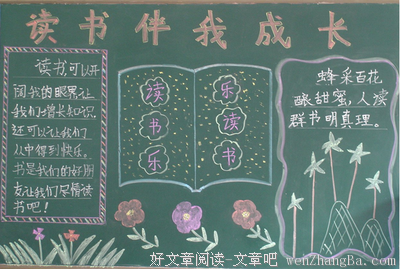 读书伴我成长
读书，可以开
阔我的眼界，让
我们增长知识，
还可以让我们
从中得到快乐。
书是我们的好朋
友，让我们尽情读
书吧！
读书乐
乐读书
蜂采百花
酿甜蜜，人读
群书明真理。
好文章阅读-文章吧 wenZhangBa.com